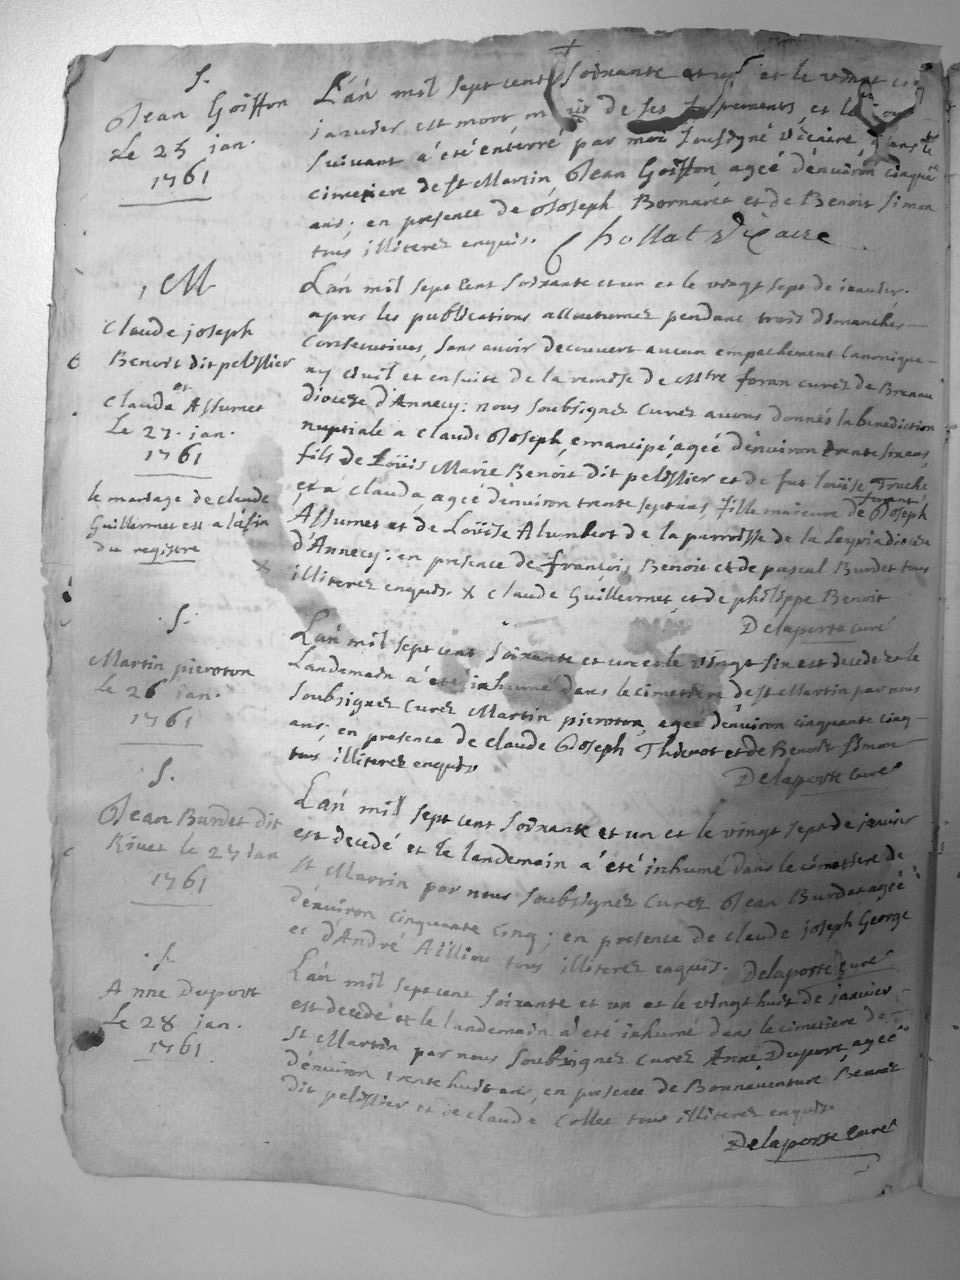 S.
Jean Goiffon
Le 25 jan.
1761
L'an mil sept cent soixante et un et le vingt
janvier est mort de ses et le
suivant a été enterré par moi soussigné vicaire, dans le
cimetiere de st Martin Jean Goiffon ageé d'environ cinqute
ans; en presence de Joseph Bornarét et de Benoit Simon
tous illiterez enquis. Chollat vicaire
M
Claude joseph
Benoit dit pelissier
et
Clauda Assumet
Le 27. jan.
1761
le mariage de claude
Guillermet est a la fin
du registre
L'an mil sept cent soixante et un et le vingt sept de janvier.
apres les publications accoutumez pendant trois dimanches
consecutives, sans avoir decouvert aucun empechement canonique
ny civil et ensuite de la remise de Mtre foran curez de Brenau
diocese d'Annecy: nous soubsignez curez avons donnés la benediction
nuptiale a claude Joseph, emancipé, ageé d'environ trente six ans,
fils de Loüis Marie Benoit dit pelissier et de fut loüise Truche
et a clauda, ageé d'environ trente sept ans, fille majeure de Joseph
Assumet et de Loüise Alumbert de la parroisse de la Leyria diocese
d'Annecy: en presence de françois Benoit et de pascal Burdet tous
illiterez enquis. X Claude Guillermet et de philippe Benoit
Delaporte curé
S.
Martin pieroton
Le 26 jan.
1761
L'an mil sept cent soixante et un et le vingt six est decedé et le
Landemain a été inhumé dans le cimetiere de st Martin par nous
soubsignez curez Martin pieroton, ageé d'environ cinquante cinq
ans, en presence de claude Joseph Thievot et de Benoit Simon
tous illiterez enquis
Delaporte curé
S.
Jean Burdet dit
Rivet le 27 jan
1761
L'an mil sept cent soixante et un et le vingt sept de janvier
est decedé et le landemain a été inhumé dans le cimetiere de
st Martin par nous soubsignez curez Jean Burdet ageé
d'environ cinquante cinq; en presence de claude joseph George
et d'André Aillioud tous illiterez enquis. Delaporte curé
S.
Anne Duport
Le 28 jan.
1761
L'an mil sept cent soixante et un et le vingt huit de janvier
est decedé et le landemain a été inhumé dans le cimetiere de
st Martin par nous soubsignez curez Anne Duport ageé
d'environ trente huit ans, en presence de Bonnaventure Benoit
dit pelissier et de claude Collet tous illiterez enquis.
Delaporte curé